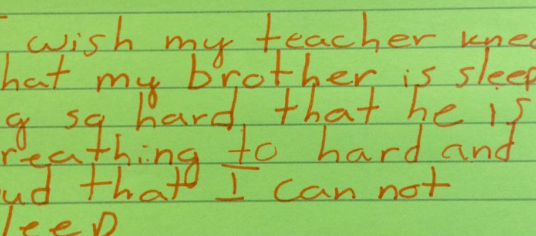 I wish my teacher knew
hat my brother is sleep
g so hard that he is
reathing to hard and
ud that I can not
leep